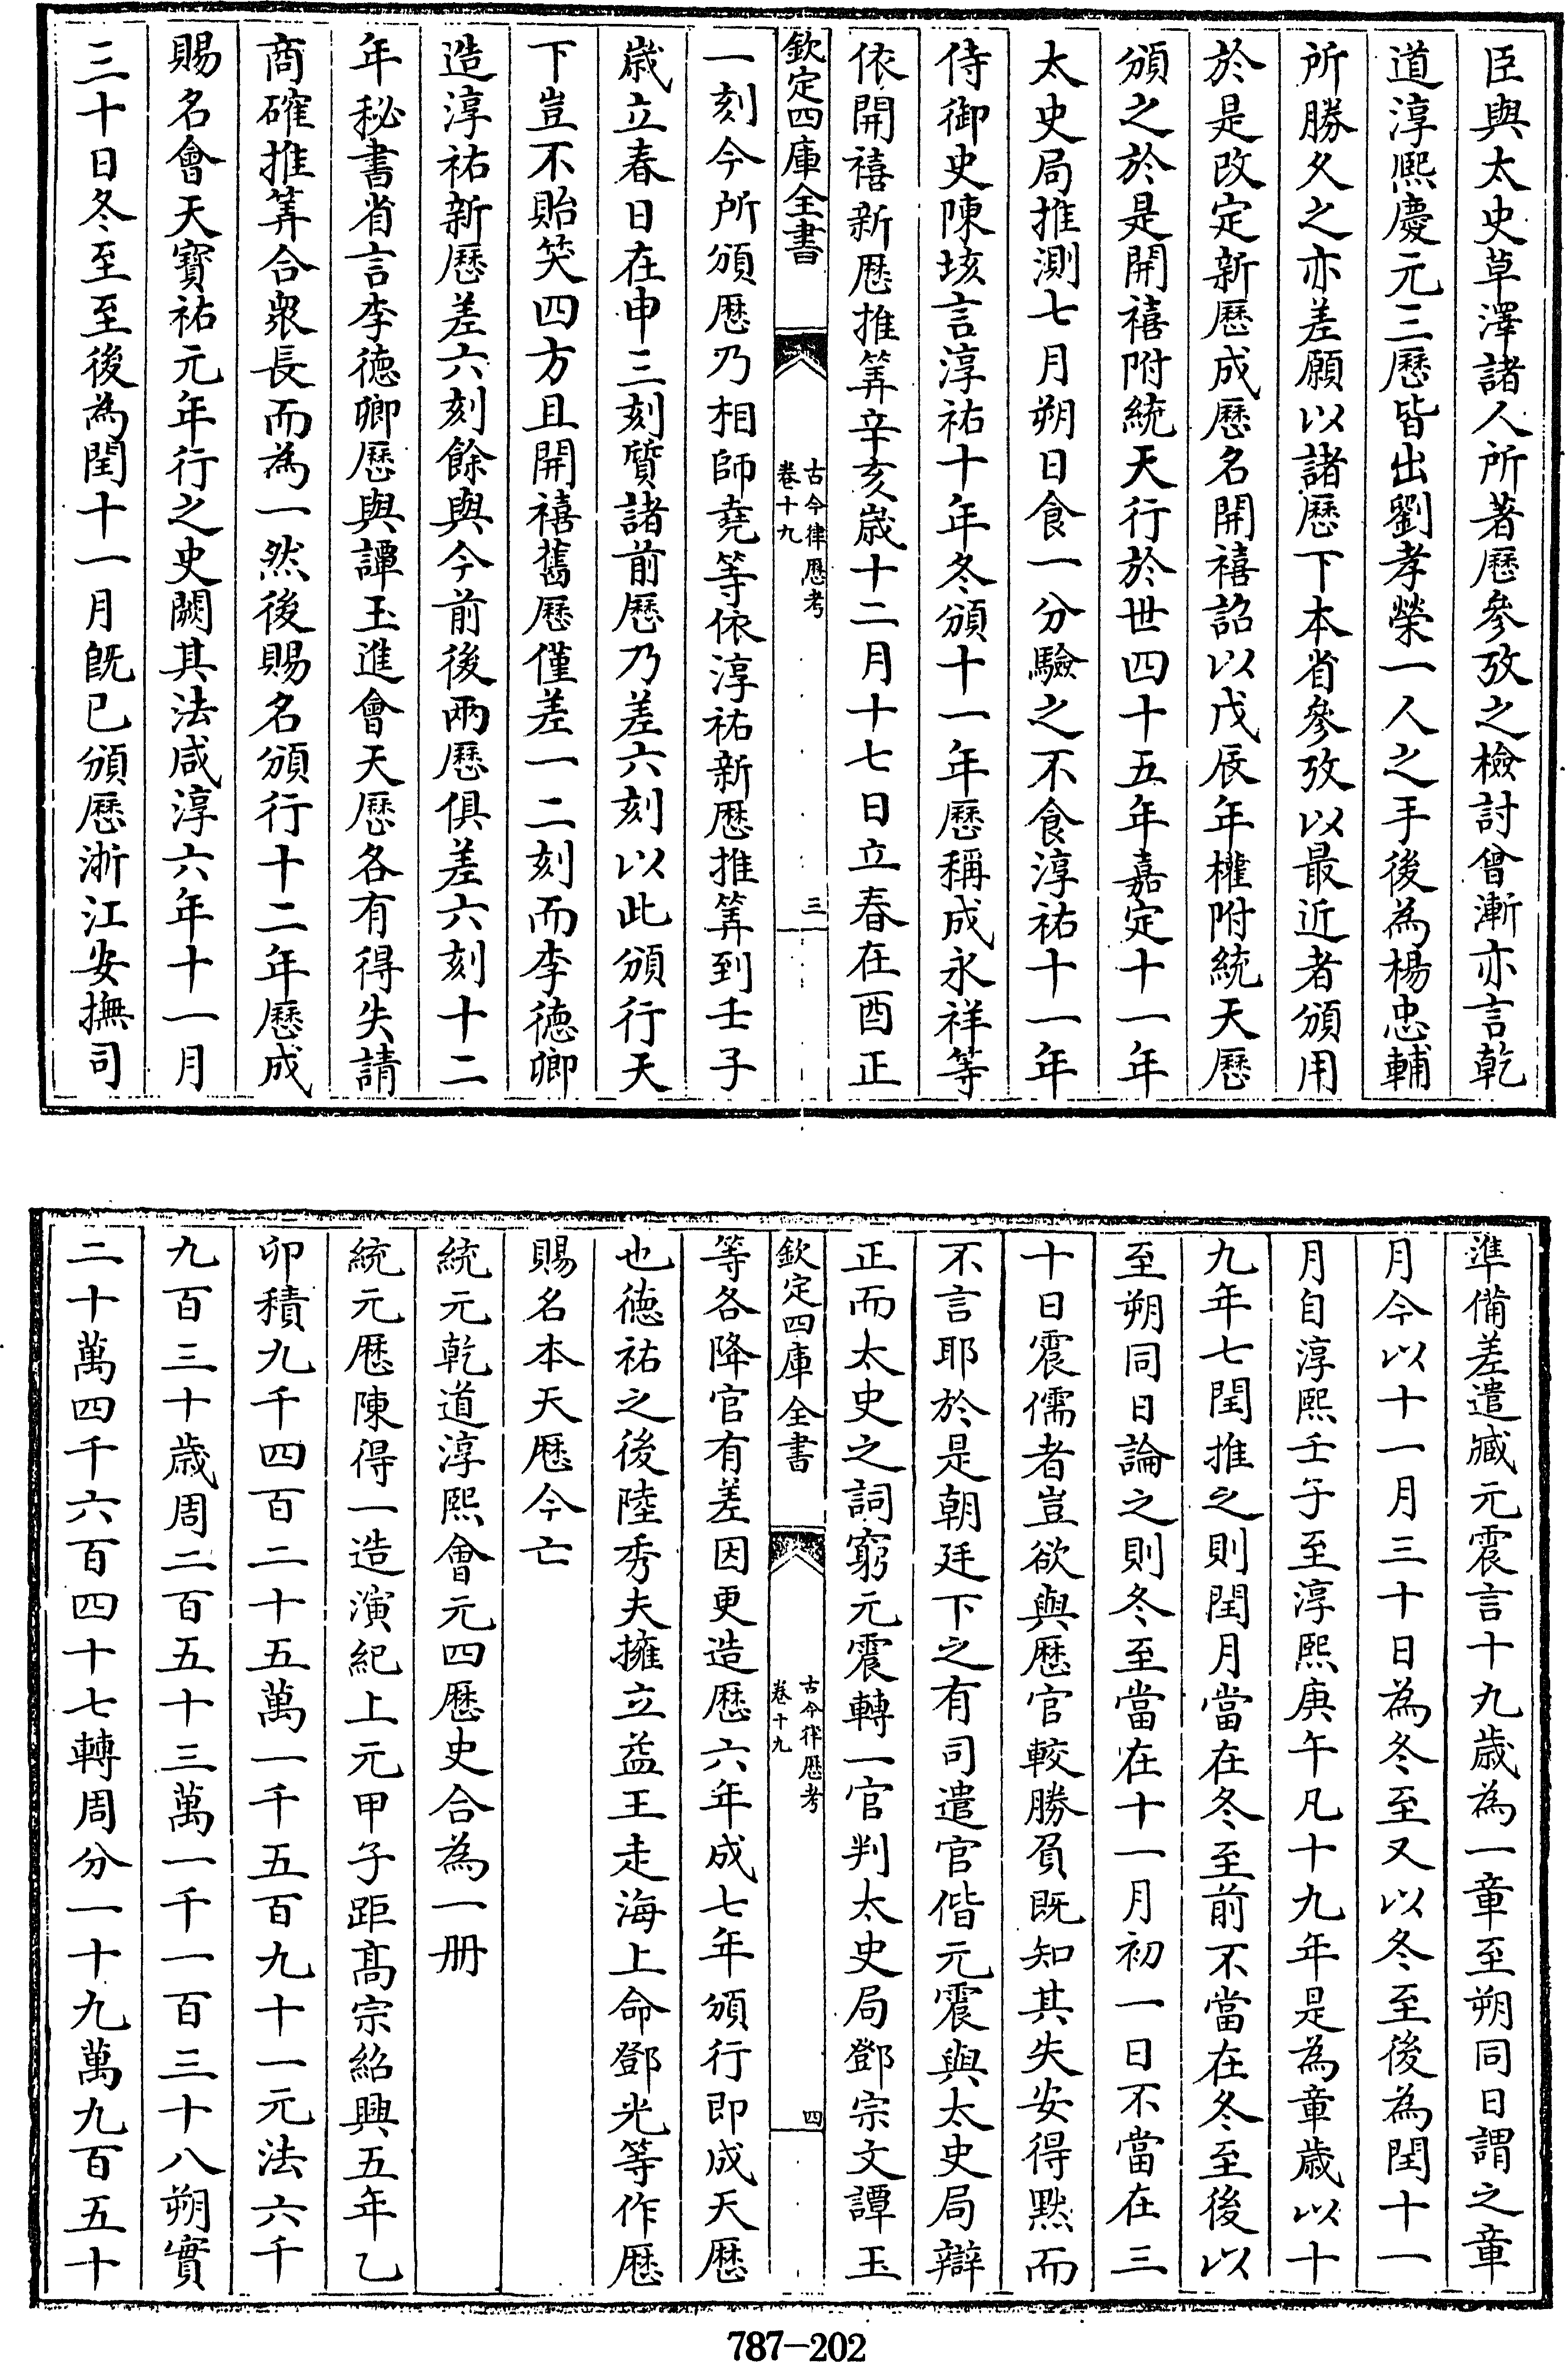 臣與太史草澤諸人所著歷參攷之檢討曾漸亦言乾
道淳熙慶元三歷皆出劉孝榮一人之手後為楊忠輔
所勝久之亦差願以諸歷下本省參攷以最近者頒用
於是改定新歷成歷名開禧詔以戊辰年權附統天歷
頒之於是開禧附統天行於世四十五年嘉定十一年
太史局推測七月朔日食一分驗之不食淳祐十一年
侍御史陳垓言淳祐十年冬頒十一年歷稱成永祥等
依開禧新歷推筭辛亥歲十二月十七日立春在酉正
欽定四庫全書
古今律歷考
卷十九
三
一刻今所頒歷乃相師堯等依淳祐新歷推筭到壬子
歲立春日在申三刻質諸前歷乃差六刻以此頒行天
下豈不貽笑四方且開禧舊歷僅差一二刻而李德卿
造淳祐新歷差六刻餘與今前後兩歷俱差六刻十二
年秘書省言李德卿歷與譚玉進會天歷各有得失請
商確推筭合衆長而為一然後賜名頒行十二年歷成
賜名會天寳祐元年行之史闕其法咸淳六年十一月
三十日冬至至後為閏十一月旣已頒歷浙江安撫司
準備差遣臧元震言十九歲為一章至朔同日謂之章
月今以十一月三十日為冬至又以冬至後為閏十一
月自淳熙壬子至淳熙庚午凡十九年是為章歲以十
九年七閏推之則閏月當在冬至前不當在冬至後以
至朔同日論之則冬至當在十一月初一日不當在三
十日震儒者豈欲與歷官較勝負既知其失安得黙而
不言耶於是朝廷下之有司遣官偕元震與太史局辯
正而太史之詞窮元震轉一官判太史局鄧宗文譚玉
欽定四庫全書
古今律歷考
卷十九
四
等各降官有差因更造歷六年成七年頒行即成天歷
也德祐之後陸秀夫擁立益王走海上命鄧光等作歷
賜名本天歷今亡
統元乾道淳熙會元四歷史合為一册
統元歷陳得一造演紀上元甲子距髙宗紹興五年乙
卯積九千四百二十五萬一千五百九十一元法六千
九百三十歲周二百五十三萬一千一百三十八朔實
二十萬四千六百四十七轉周分一十九萬九百五十
787-202